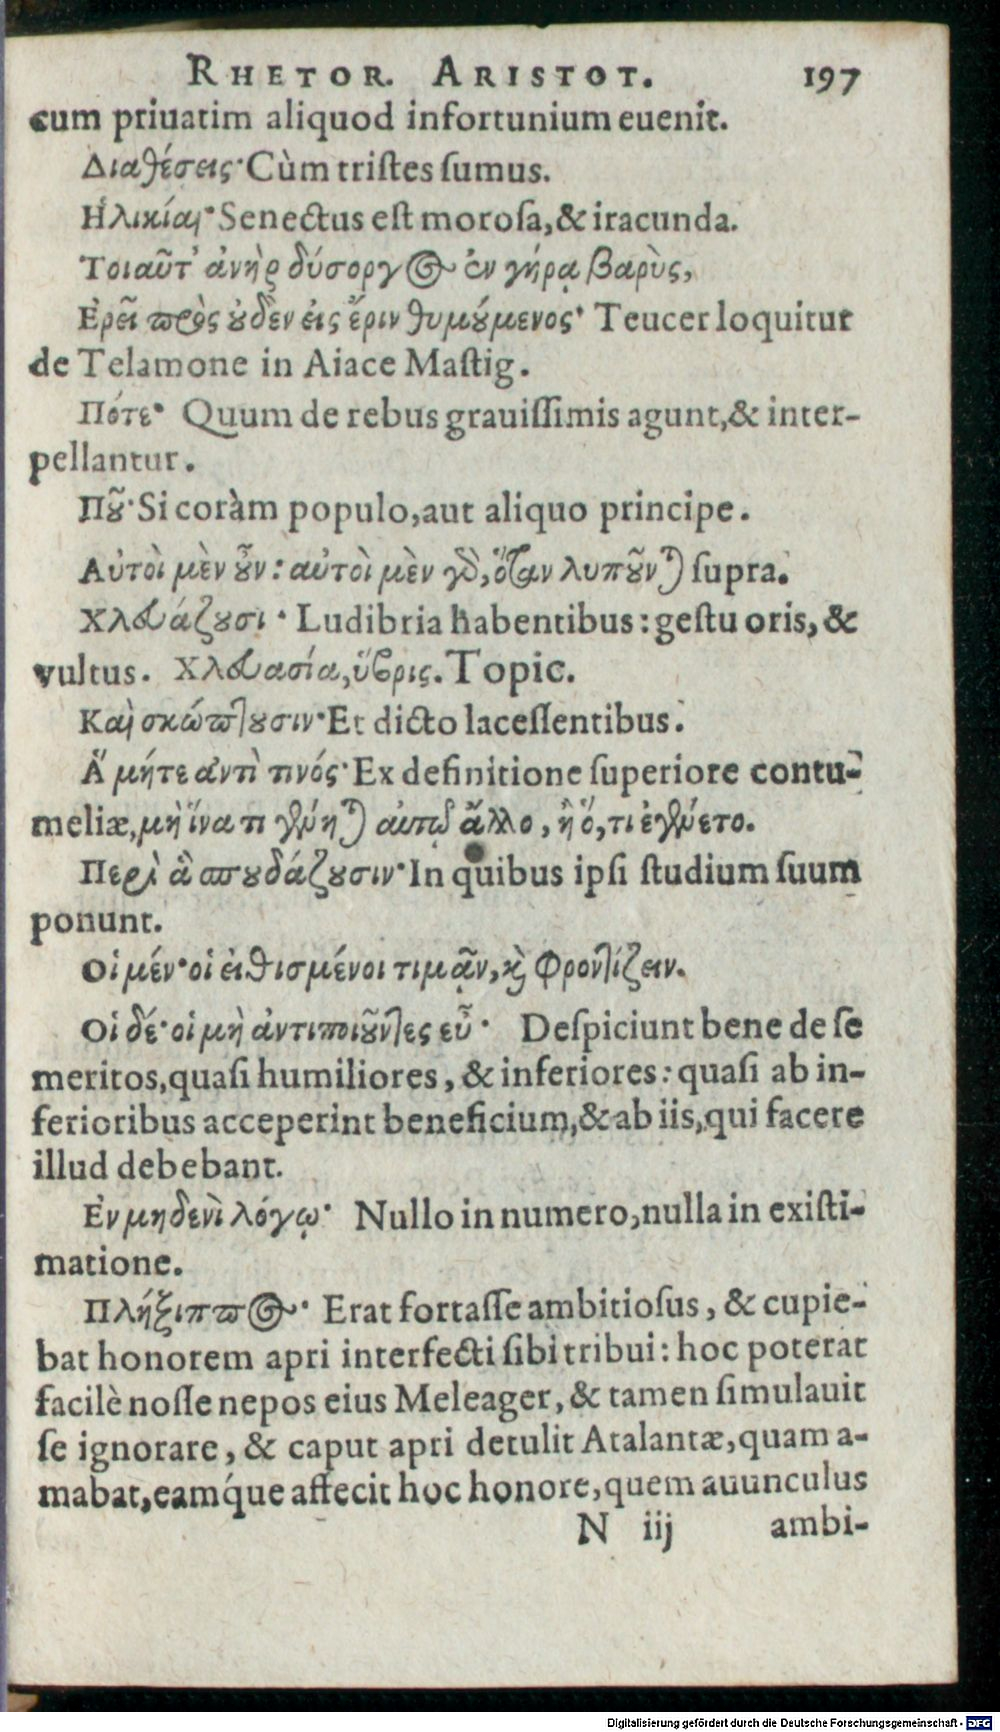 RHETOR. ARISTOT. 197
cum priuatim aliquod infortunium euenit.
Διαθέσεις· Cùm tristes sumus.
Ηλικίαι· Senectus est morosa, & iracunda.
Τοιαῦτ᾽ ἀνὴρ δύσοργος ἐν γήρᾳ βαρὺς,
Ἐρεῖ πρὸς οὐδὲν εἰς ἔριν θυμούμενος· Teucer loquitur
de Telamone in Aiace Mastig.
Πότε· Quum de rebus grauissimis agunt, & inter-
pellantur.
Ποῦ· Si coràm populo, aut aliquo principe.
Αὐτοὶ μὲν οὖν: αὐτοὶ μὲν γὸ, ὅταν λυπῶνται supra.
Χλευάζουσι· Ludibria habentibus: gestu oris, &
vultus. Χλευασία, ὕβρις. Topic.
Καὶ σκώπτουσιν· Et dicto lacessentibus.
Ἃ μήτε ἀντὶ τινός· Ex definitione superiore contu-
meliæ, μὴ ἵνα τι γένηται αὐτῷ ἄλλο, ἢ ὅ, τι ἐγένετο.
Περὶ ἃ σπουδάζουσιν· In quibus ipsi studium suum
ponunt.
Οἱ μέν· οἱ εἰθισμένοι τιμᾷν, καὶ φροντίζειν.
Οἱ δέ· οἱ μὴ ἀντιποιοῦντες εὖ· Despiciunt bene de se
meritos, quasi humiliores, & inferiores: quasi ab in-
ferioribus acceperint beneficium, & ab iis, qui facere
illud debebant.
Ἐν μηδενὶ λόγῳ· Nullo in numero, nulla in existi-
matione.
Πλήξιππος· Erat fortasse ambitiosus, & cupie-
bat honorem apri interfecti sibi tribui: hoc poterat
facilè nosse nepos eius Meleager, & tamen simulauit
se ignorare, & caput apri detulit Atalantæ, quam a-
mabat, eamq́ue affecit hoc honore, quem auunculus
N iij ambi-
Digitalisierung gefördert durch die Deutsche Forschungsgemeinschaft - DFG